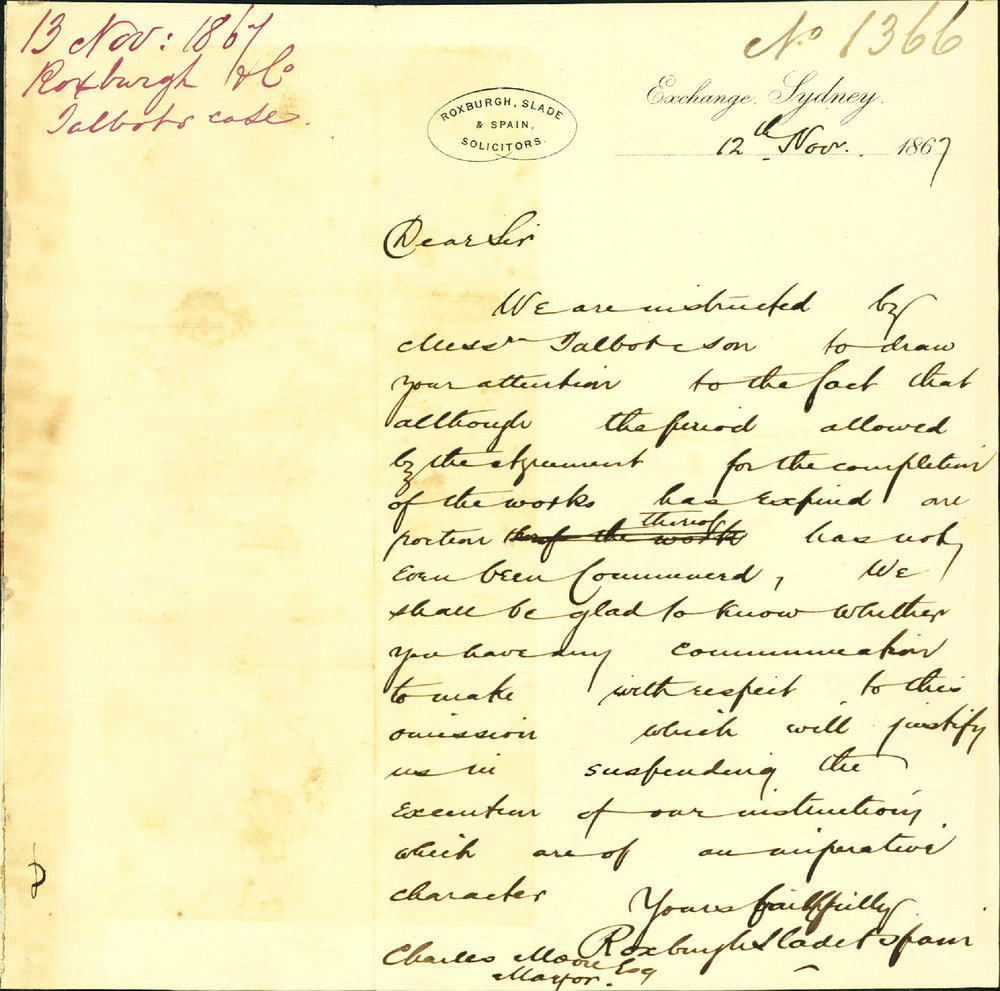 13 Nov: 1867
Roxburgh & Co
Talbots case.
No 1366
ROXBURGH, SLADE
& SPAIN,
SOLICITORS.
Exchange, Sydney.
12th Nov. 1867
Dear Sir
We are instructed by
Messrs Talbot & Son to draw
your attention to the fact that
although the period allowed
by the Agreement for the completion
of the works has expired one
portion thereof has not
even been Commenced, We
shall be glad to know whether
you have any communication
to make with respect to this
omission which will justify
us in suspending the
execution of our instructions
which are of an imperative
character
Yours faithfully
Roxburgh Slade & Spain
Charles Moore Esq
Mayor.